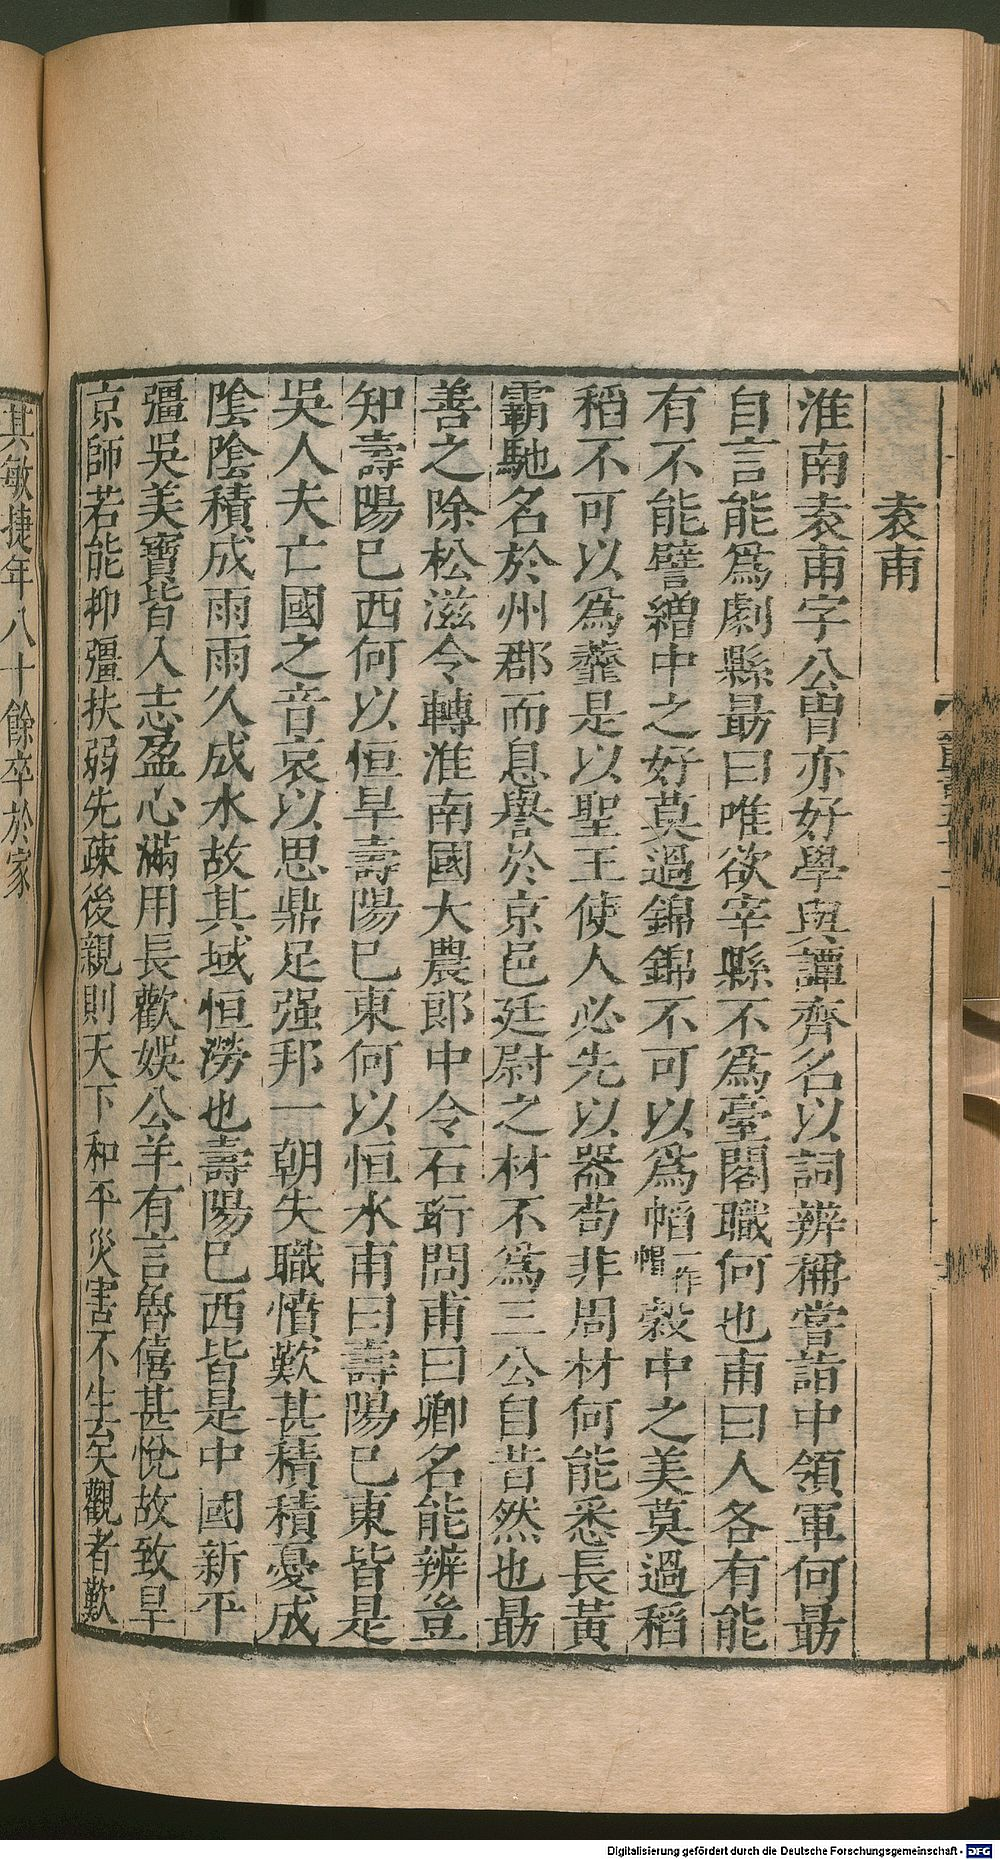 袁甫
淮南袁甫字公胄亦好學與譚齊名以詞辨稱嘗詣中領軍何勗
自言能爲劇縣勗曰唯欲宰縣不爲臺閣職何也甫曰人各有能
有不能譬繒中之好莫過錦錦不可以爲幍一作帽穀中之美莫過稻
稻不可以爲虀是以聖王使人必先以器苟非周材何能悉長黃
霸馳名於州郡而息譽於京邑廷尉之材不爲三公自昔然也勗
善之除松滋令轉淮南國大農郎中令石珩問甫曰卿名能辨豈
知壽陽已西何以恒旱壽陽已東何以恒水甫曰壽陽已東皆是
吳人夫亡國之音哀以思鼎足强邦一朝失職憤歎甚積積憂成
陰陰積成雨雨久成水故其域恒澇也壽陽已西皆是中國新平
彊吳美寶皆入志盈心滿用長歡娛公羊有言魯僖甚悅故致旱
京師若能抑彊扶弱先疎後親則天下和平災害不生矣觀者歎
其敏捷年八十餘卒於家
Digitalisierung gefördert durch die Deutsche Forschungsgemeinschaft - DFG